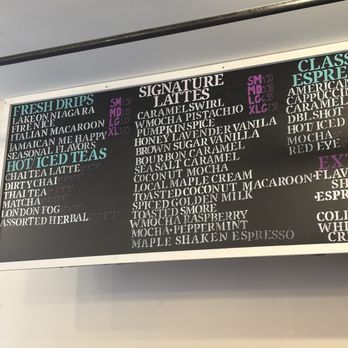 FRESH DRIPS
LAKE ON NIAGARA
FIRE N ICE
ITALIAN MACAROON
JAMAICAN ME HAPPY
SEASONAL FLAVORS
SM
MD
LG
XL
HOT ICED TEAS
CHAI TEA LATTE
DIRTY CHAI
THAI TEA
MATCHA
LONDON FOG
ASSORTED HERBAL
SIGNATURE
LATTES
CARAMEL SWIRL
W.MOCHA PISTACHIO
PUMPKIN SPICE
HONEY LAVENDER VANILLA
BROWN SUGAR VANILLA
BOURBON CARAMEL
SEASALT CARAMEL
COCONUT MOCHA
LOCAL MAPLE CREAM
TOASTED COCONUT MACAROON
SPICED GOLDEN MILK
TOASTED SMORE
W.MOCHA RASPBERRY
MOCHA PEPPERMINT
MAPLE SHAKEN ESPRESSO
SM
MD
LG
XLG
CLASS
ESPRE
AMERIC
CAPPUC
CARAMEL
DBL SHOT
HOT/ICED
MOCHA
RED EYE
EXT
FLAV
SH
COL
WH
CR